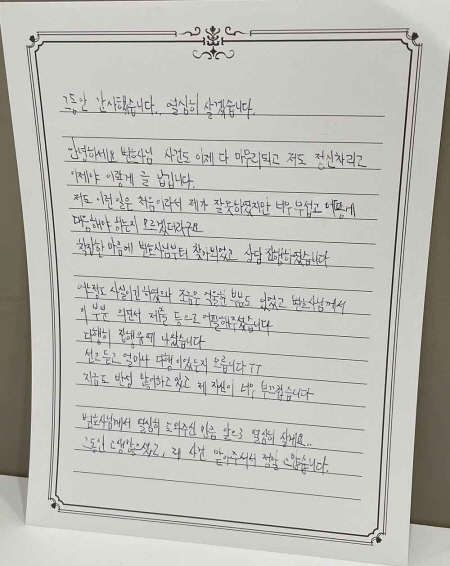 그동안 감사했습니다.. 열심히 살겠습니다.
안녕하세요 변호사님 사건도 이제 다 마무리되고 저도 정신차리고
이제야 이렇게 글 남깁니다.
저도 이런 일은 처음이라서 제가 잘못하였지만 너무 무섭고 어떻게
대응해야 하는지 모르겠더라구요
착잡한 마음에 변호사님부터 찾아뵈었고 상담 진행하였습니다
어느정도 사실이긴하였으나 조금은 억울한 부분도 있었고 변호사님께서
이 부분 의견서 제출 등으로 어필해주셨습니다
다행히 집행유예 나왔습니다
선고 듣고 얼마나 다행이었는지 모릅니다 TT
지금도 반성 많이하고 있고 제 자신이 너무 부끄럽습니다
변호사님께서 열심히 도와주신 만큼 앞으로 열심히 살게요..
그동안 고생많으셨고, 제 사건 맡아주셔서 정말 고맙습니다.